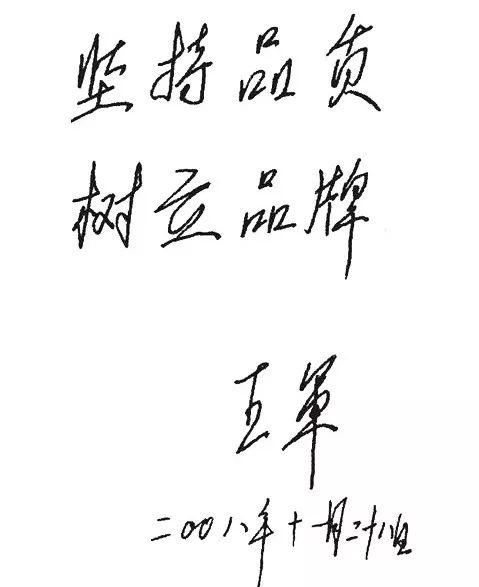 坚持品质
树立品牌
王军
二〇〇八年十一月二十八日